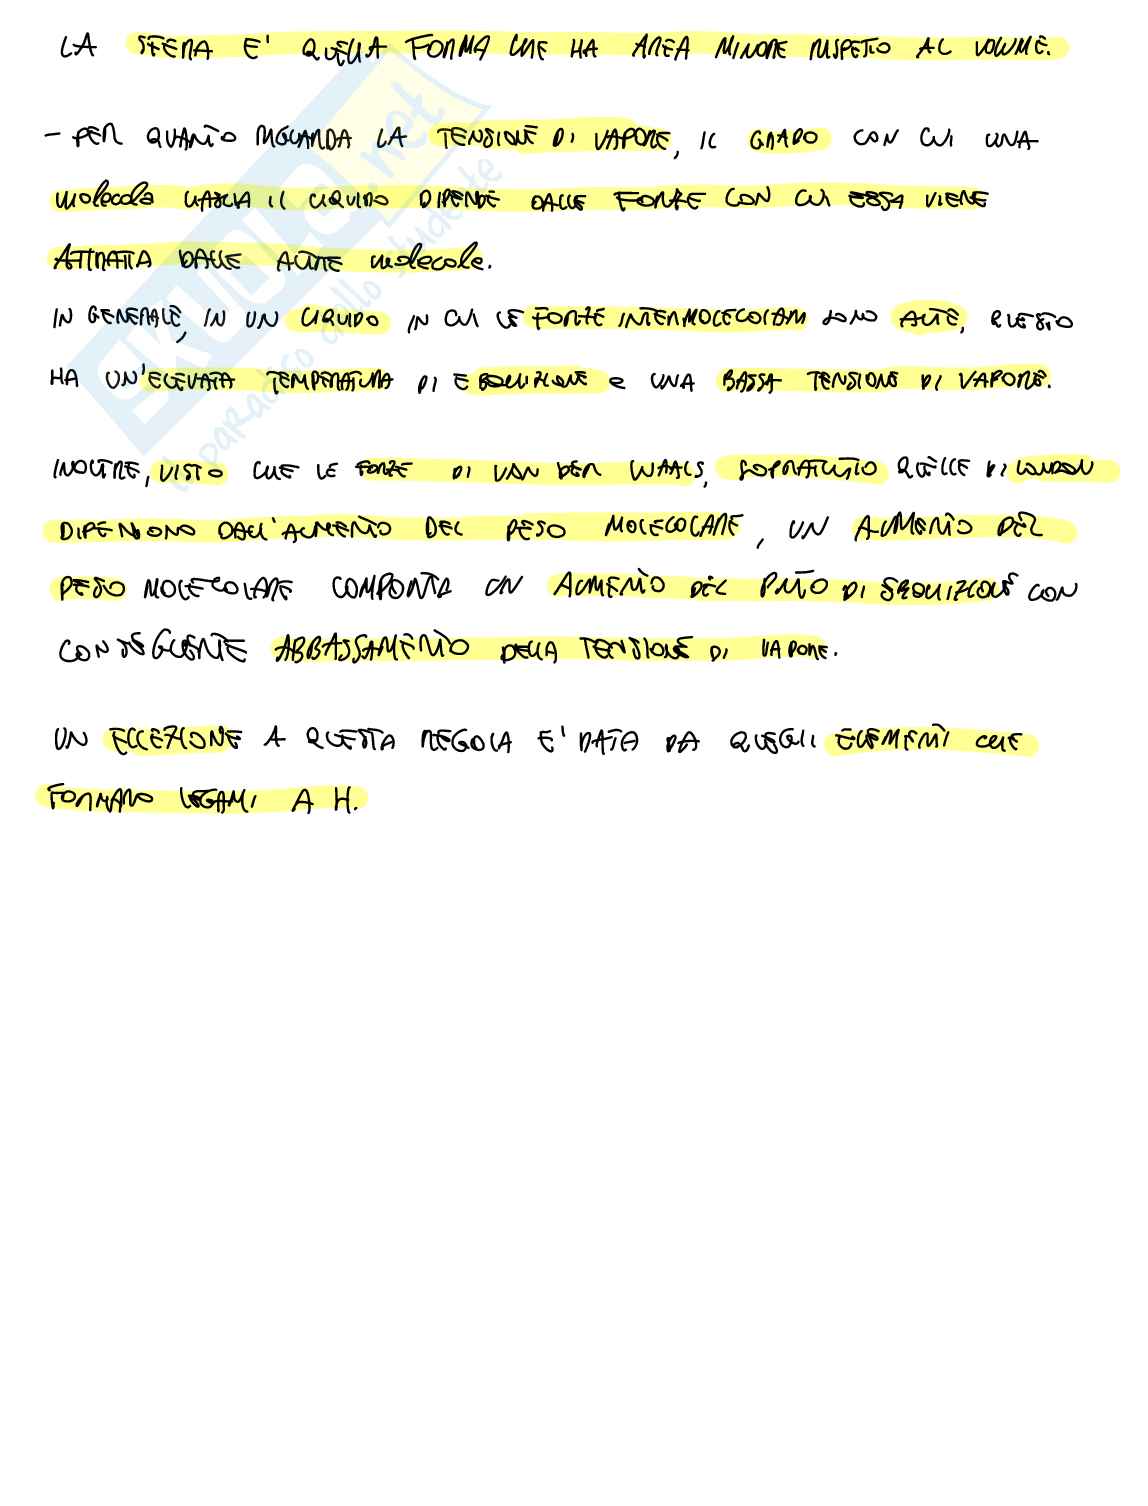 LA SFERA E' QUELLA FORMA CHE HA AREA MINORE RISPETTO AL VOLUME.
- PER QUANTO RIGUARDA LA TENSIONE DI VAPORE, IL GRADO CON CUI UNA
molecola LASCIA IL LIQUIDO DIPENDE DALLE FORZE CON CUI ESSA VIENE
ATTIRATA DALLE ALTRE molecole.
IN GENERALE, IN UN LIQUIDO IN CUI LE FORZE INTERMOLECOLARI SONO ALTE, QUESTO
HA UN'ELEVATA TEMPERATURA DI EBOLLIZIONE e UNA BASSA TENSIONE DI VAPORE.
INOLTRE, VISTO CHE LE FORZE DI VAN DER WAALS, SOPRATTUTTO QUELLE DI LONDON
DIPENDONO DALL'AUMENTO DEL PESO MOLECOLARE, UN AUMENTO DEL
PESO MOLECOLARE COMPORTA UN AUMENTO DEL PUNTO DI EBOLLIZIONE CON
CONSEGUENTE ABBASSAMENTO DELLA TENSIONE DI VAPORE.
UN ECCEZIONE A QUESTA REGOLA E' DATA DA QUEGLI ELEMENTI CHE
FORMANO LEGAMI A H.
SKUOLA.net
il paradiso dello studente